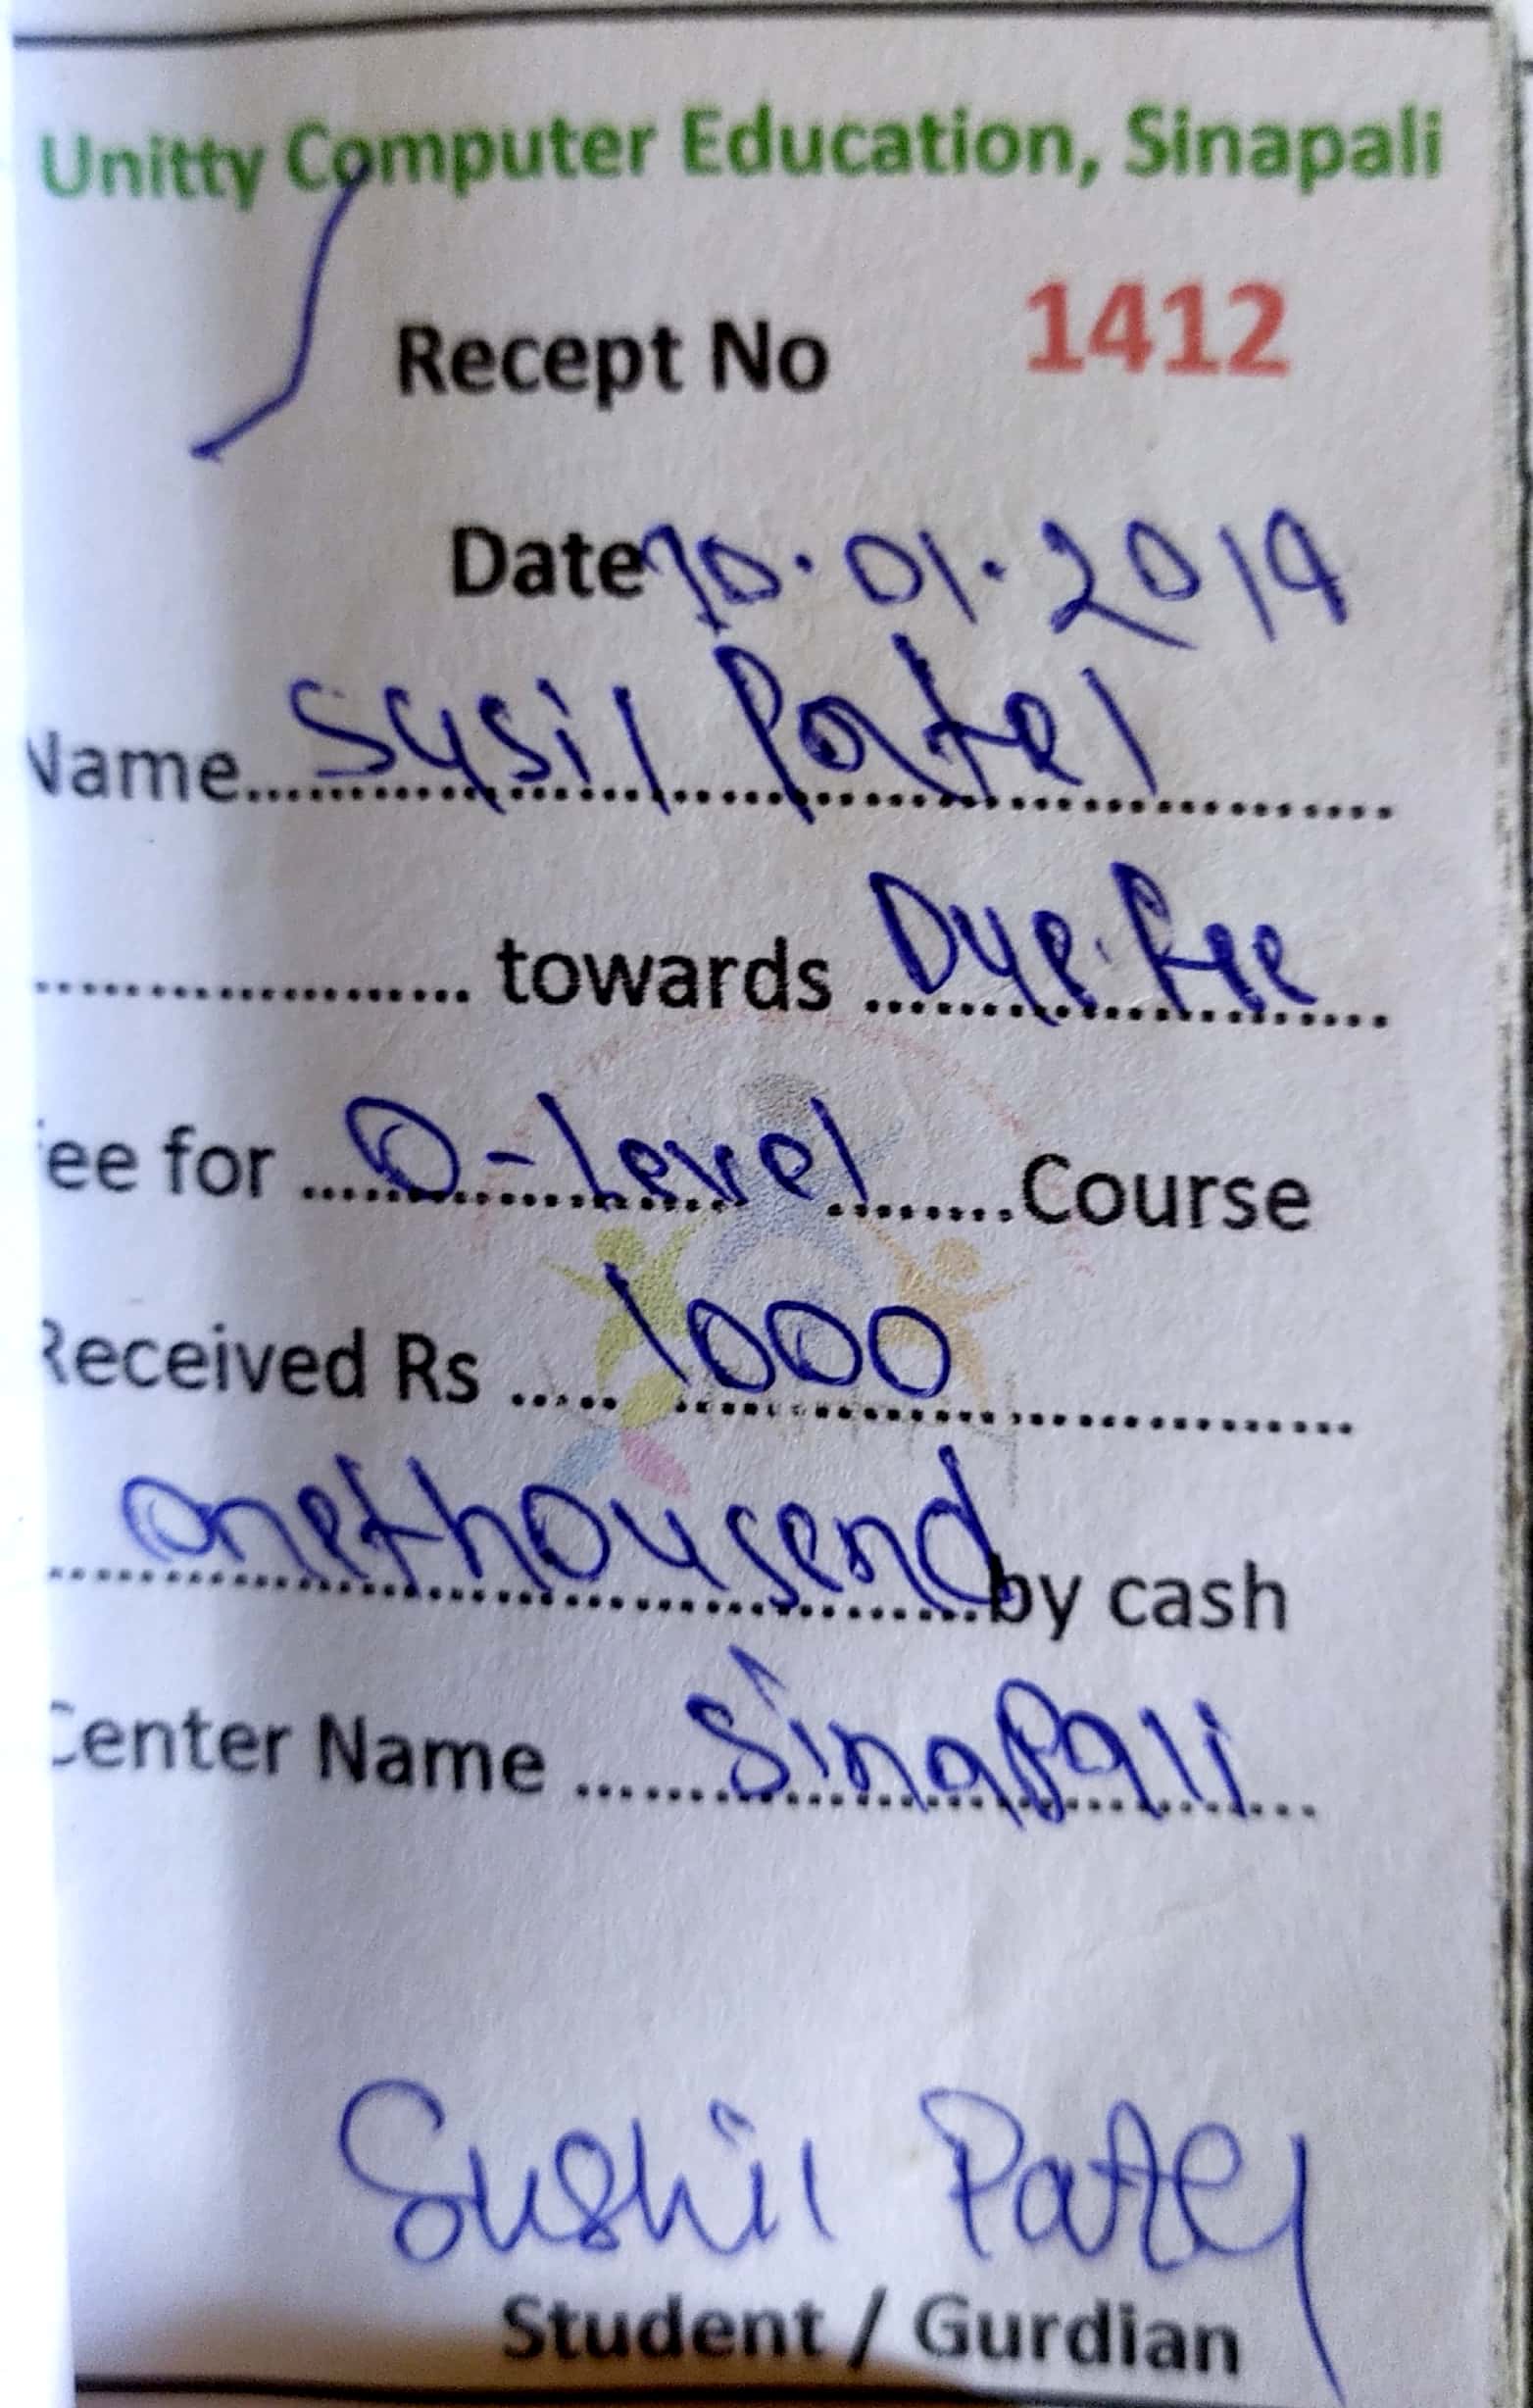 Unitty Computer Education, Sinapali
Recept No 1412
Date 10.01.2019
Name Susil Patel
towards Due fee
ee for O-Level Course
Received Rs 1000
onethousend by cash
Center Name Sinapali
Sushil Patel
Student / Gurdian